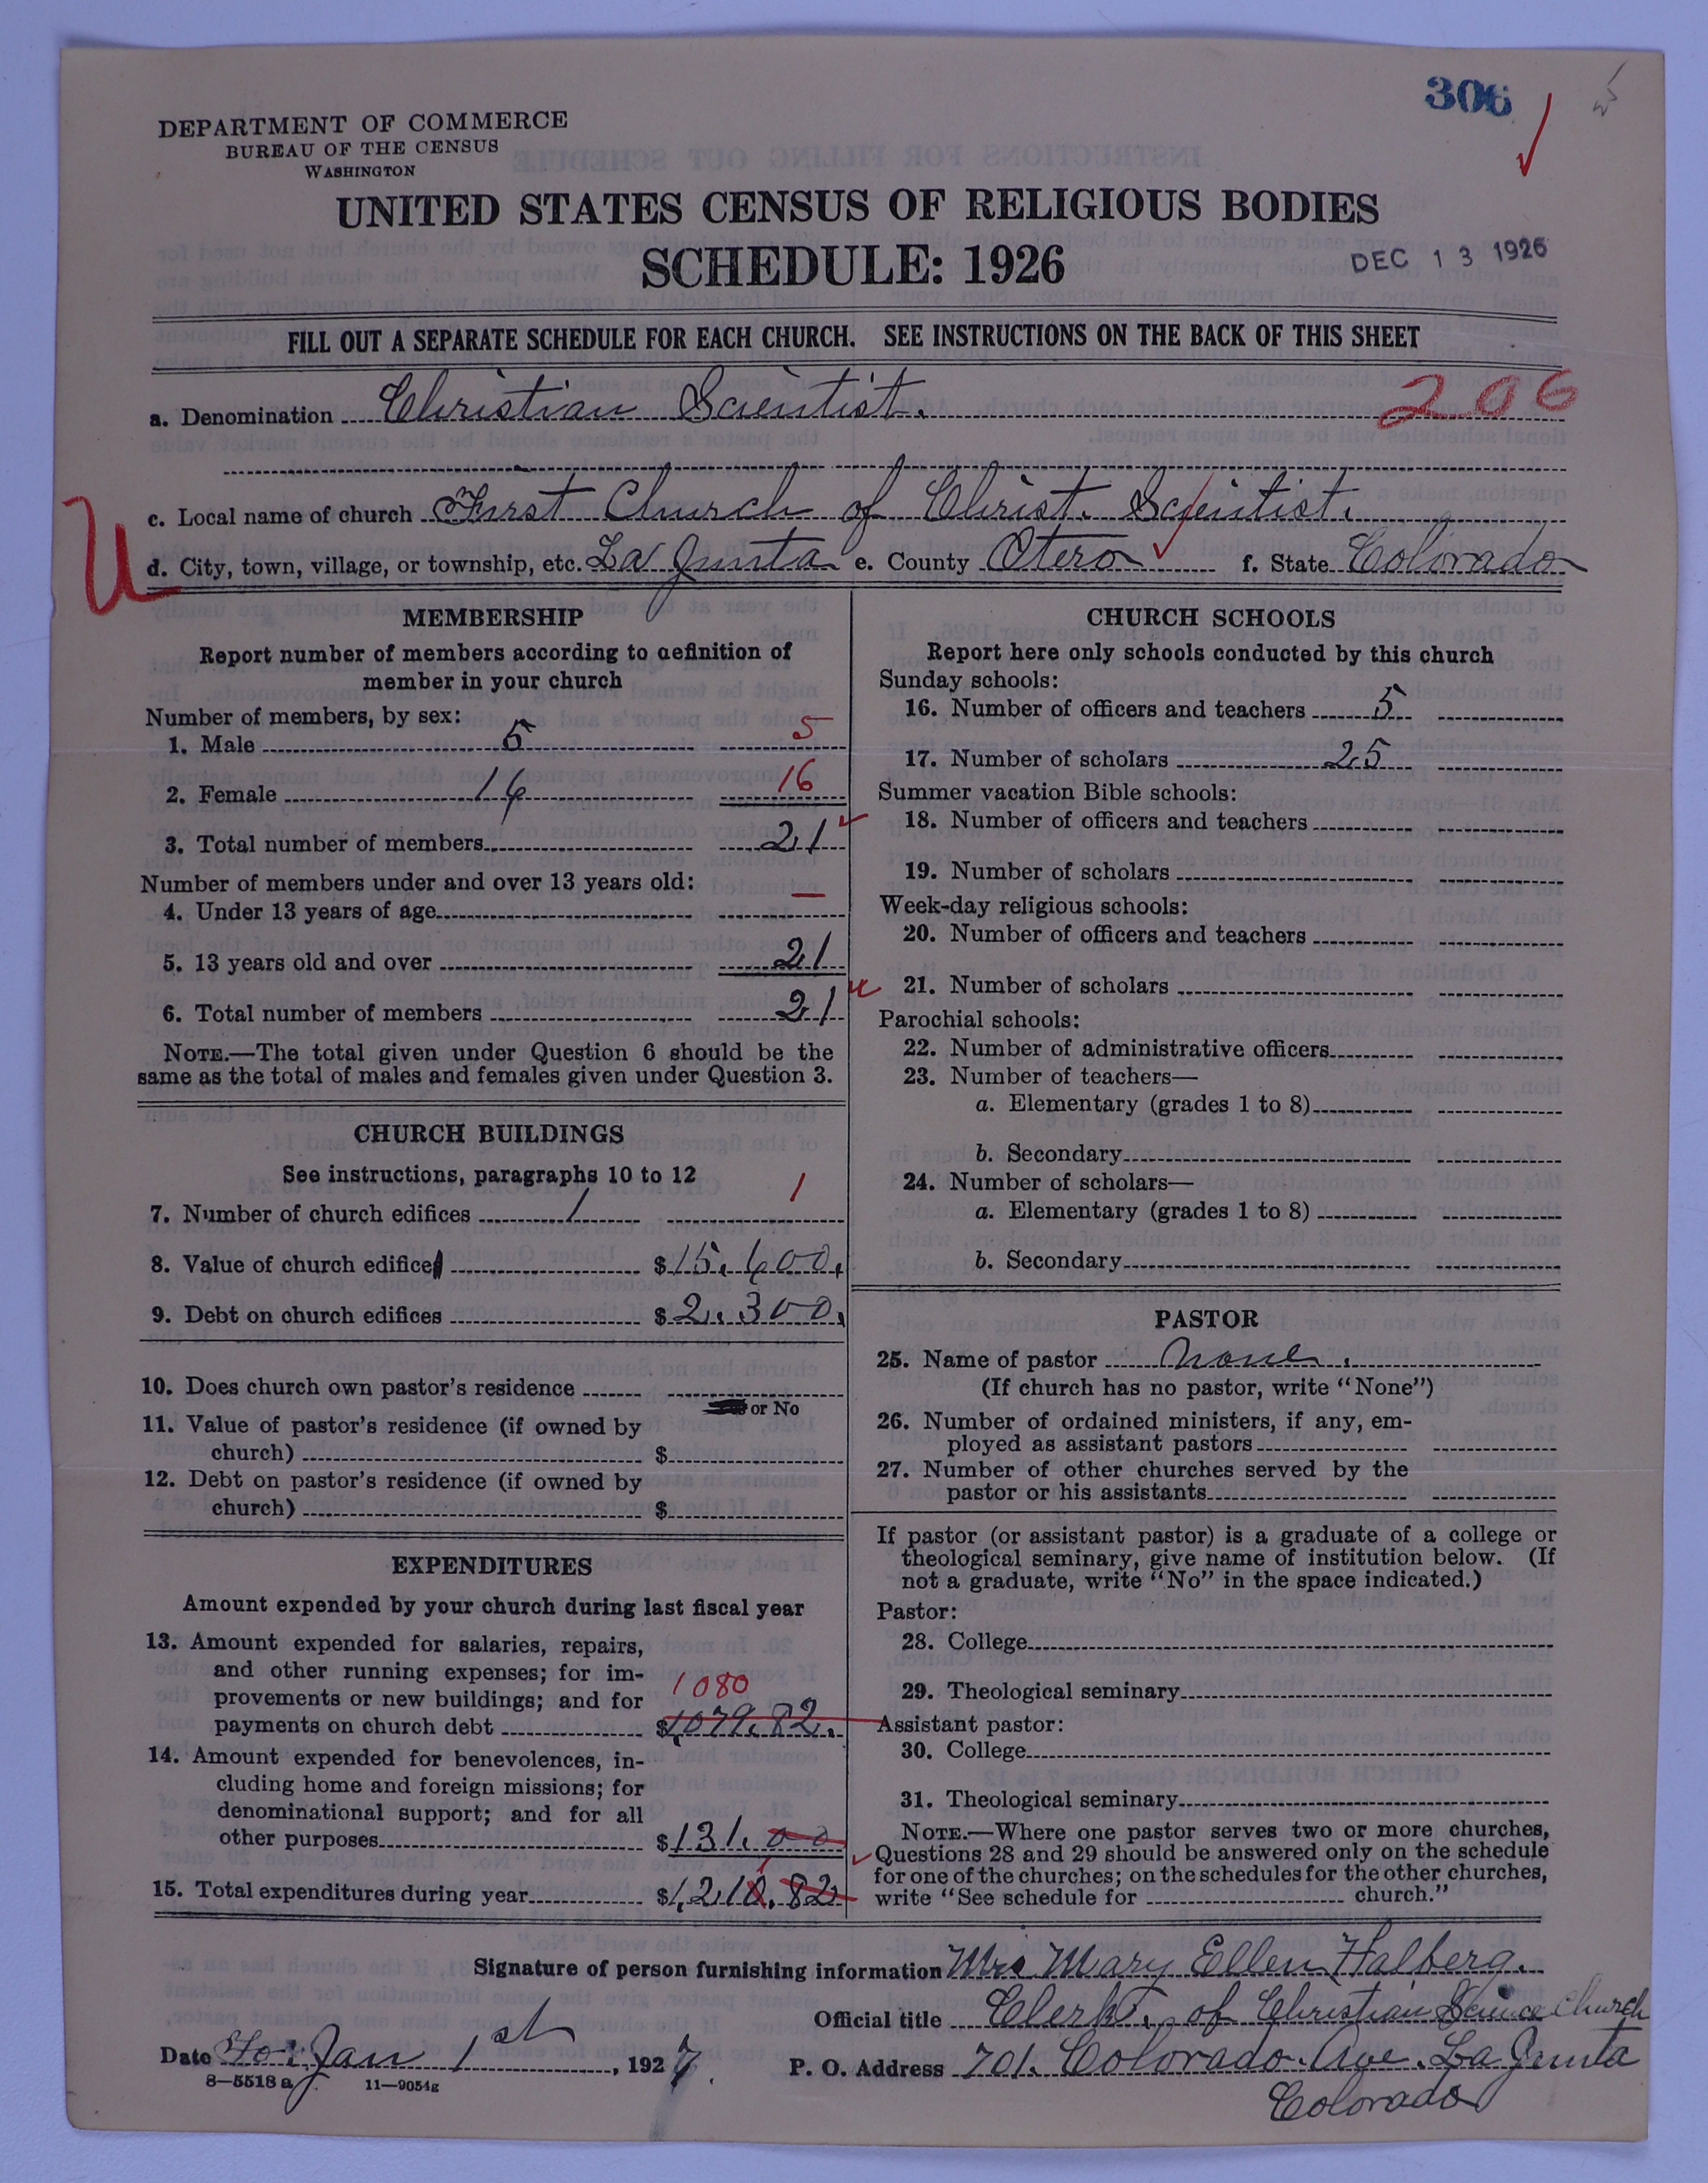 306
DEPARTMENT OF COMMERCE
BUREAU OF THE CENSUS
WASHINGTON
UNITED STATES CENSUS OF RELIGIOUS BODIES
SCHEDULE: 1926
DEC 13 1926
FILL OUT A SEPARATE SCHEDULE FOR EACH CHURCH. SEE INSTRUCTIONS ON THE BACK OF THIS SHEET
a. Denomination Christian Scientist. 206
c. Local name of church First Church of Christ. Scientist.
d. City, town, village, or township, etc. La Junta e. County Otero f. State Colorado
U
MEMBERSHIP
Report number of members according to definition of
member in your church
Number of members, by sex:
1. Male 5 5
2. Female 16 16
3. Total number of members 21
Number of members under and over 13 years old:
4. Under 13 years of age —
5. 13 years old and over 21
6. Total number of members 21
NOTE.—The total given under Question 6 should be the
same as the total of males and females given under Question 3.
CHURCH BUILDINGS
See instructions, paragraphs 10 to 12
7. Number of church edifices 1 1
8. Value of church edifice $15,600.
9. Debt on church edifices $2,300.
10. Does church own pastor's residence
or No
11. Value of pastor's residence (if owned by
church) $
12. Debt on pastor's residence (if owned by
church) $
EXPENDITURES
Amount expended by your church during last fiscal year
13. Amount expended for salaries, repairs,
and other running expenses; for im-
provements or new buildings; and for 1080
payments on church debt $1079.82.
14. Amount expended for benevolences, in-
cluding home and foreign missions; for
denominational support; and for all
other purposes $131.00
15. Total expenditures during year $1,210.82
CHURCH SCHOOLS
Report here only schools conducted by this church
Sunday schools:
16. Number of officers and teachers 5
17. Number of scholars 25
Summer vacation Bible schools:
18. Number of officers and teachers
19. Number of scholars
Week-day religious schools:
20. Number of officers and teachers
21. Number of scholars
Parochial schools:
22. Number of administrative officers
23. Number of teachers—
a. Elementary (grades 1 to 8)
b. Secondary
24. Number of scholars—
a. Elementary (grades 1 to 8)
b. Secondary
PASTOR
25. Name of pastor None.
(If church has no pastor, write "None")
26. Number of ordained ministers, if any, em-
ployed as assistant pastors
27. Number of other churches served by the
pastor or his assistants
If pastor (or assistant pastor) is a graduate of a college or
theological seminary, give name of institution below. (If
not a graduate, write "No" in the space indicated.)
Pastor:
28. College
29. Theological seminary
Assistant pastor:
30. College
31. Theological seminary
NOTE.—Where one pastor serves two or more churches,
Questions 28 and 29 should be answered only on the schedule
for one of the churches; on the schedules for the other churches,
write "See schedule for church."
Signature of person furnishing information Mrs Mary Ellen Halberg.
Official title Clerk. of Christian Science Church
Date Jan 1st, 1927.
P. O. Address 701. Colorado. Ave. La Junta
Colorado
8—5518a 11—9054g